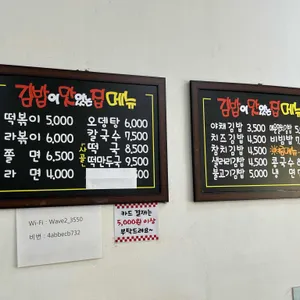 김밥이 맛있는 집 메뉴
떡볶이 5,000
라볶이 6,000
쫄면 6,500
라면 4,000
오뎅탕 6,000
칼국수 7,500
시골
떡국 8,500
떡만두국 9,500
Wi-Fi : Wave2_3550
비번 : 4abbecb732
카드 결제는
5,000원 이상
부탁드려요~
김밥이 맛있는 집 메뉴
야채김밥 3,500
치즈김밥 4,500
참치김밥 4,500
샐러리김밥 4,500
불고기김밥 5,000
비빔밥
콩국수
냉면